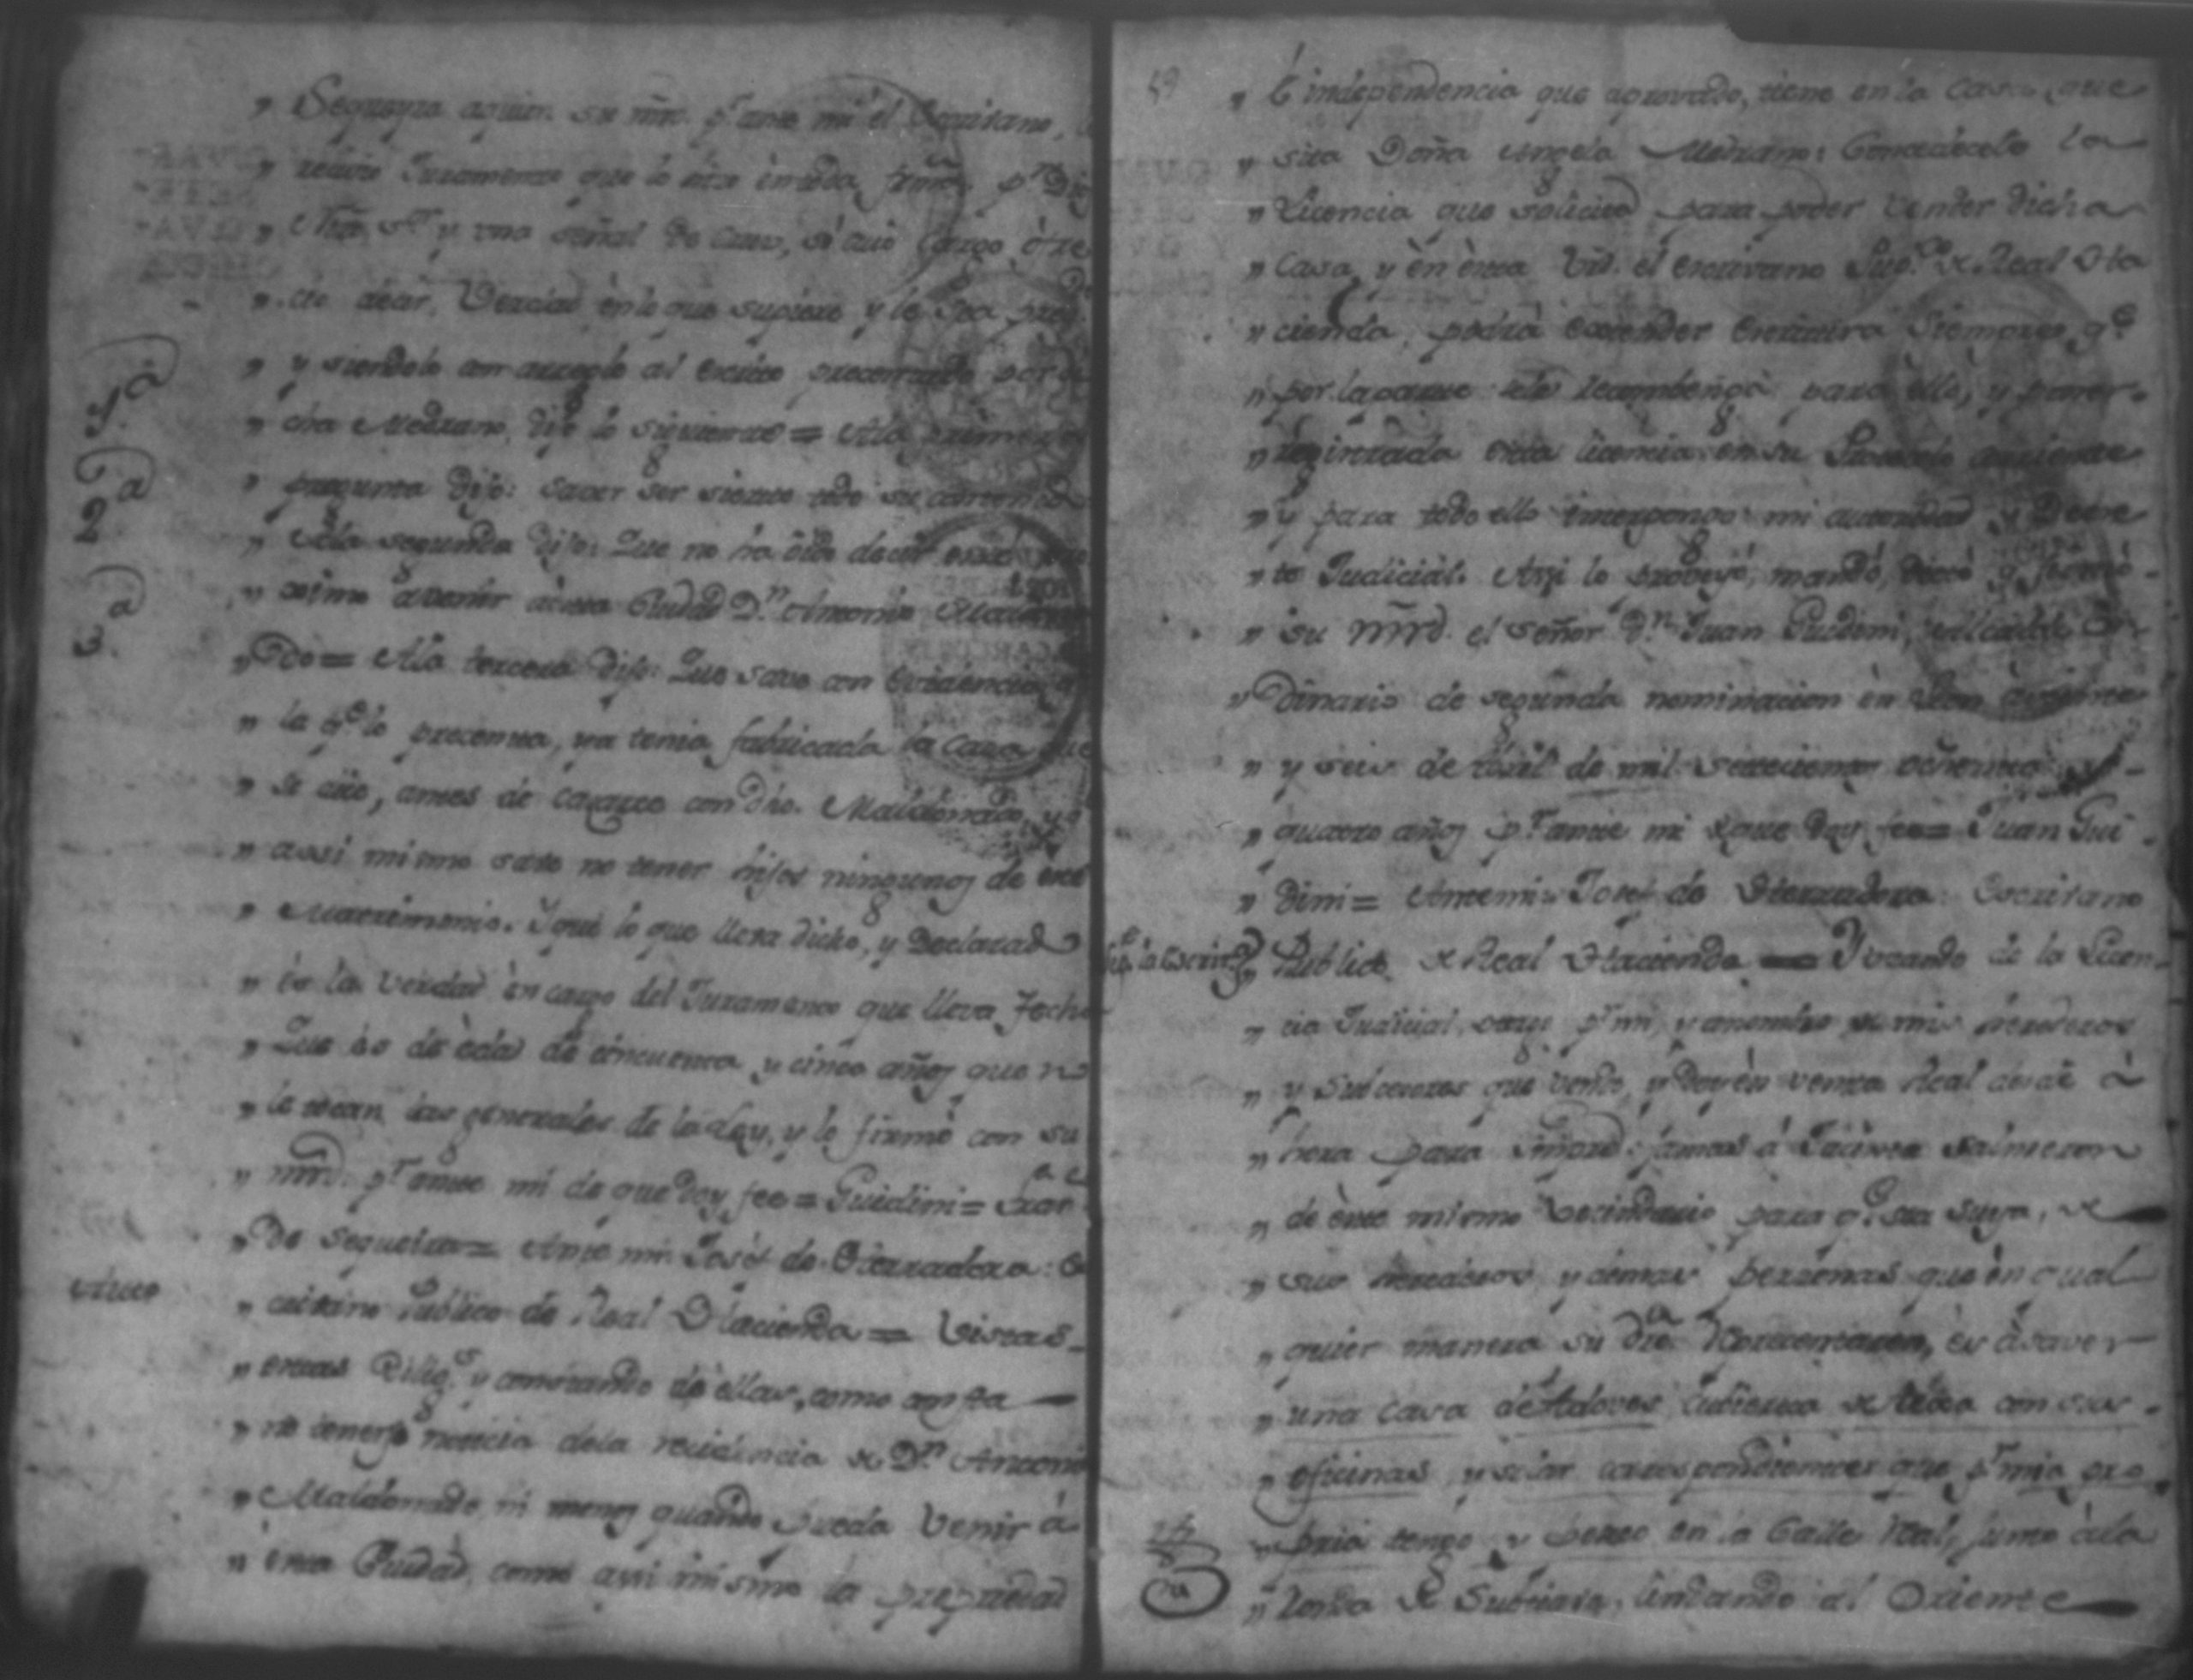 " Sequeyra aquien su mrd. pr. ante mi el Escrivano,
" recivio Juramento que lo hizo en toda forma pr. Dios
" Ntro. Sr. y una señal de Cruz, so cuio Cargo ofre
" cio decir Verdad en lo que supiere y le sea preg
" y siendolo con arreglo al escrito precentado por di
1.a " cha Medrano, dijo lo siguiente = Ala primera
" pregunta dijo: saver ser sierto todo su contenido
2.a " Ala segunda dijo: Que no ha oido decir
" a venir a esta Ciudad Dn. Antonio Maldona
3.a " do = Ala tercera dijo: Que save con evidencia, q
" la qe. lo precenta, ya tenia fabricada la casa que
" se dice, antes de casarce con dho. Maldonado, y q
" assi mismo save no tener hijos ningunos de este
" Matrimonio. Y que lo que lleva dicho, y Declarado
" es la verdad en cargo del Juramento que lleva fecho
" Que es de edad de cincuenta y cinco años que no
" le tocan las generales de la Ley, y lo firmó con su
" mrd. pr. ante mi de que doy fee = Guidimi =
" de Sequeira = Ante mi Josef de Herradora: Es
Auto " crivano Publico de Real Hacienda = Vistas
" estas Diligs. y constando de ellas, como consta
" no tenerse noticia dela recidencia de Dn. Antonio
" Maldonado, ni menos quando pueda Venir á
" esta Ciudad, como assi mismo la propriedad
" é independencia que aprovado, tiene en la Casa, que
" sita Doña Angela Medrano: Concedecele la
" Licencia que solicita para poder vender dicha
" Casa, y en esta Vid. el escrivano Puco. de Real Ha
" cienda, podrá extender Escritura Siempre qe.
" por la parte se le para ello, y
" registrada esta licencia en su
" y para todo ello interpongo mi autoridad y Decre
" to Judicial. Assi lo proveyó, mandó, y firmó
" su mrd. el señor Dn. Juan Guidimi, Alcalde Or
" dinario de segunda nominacion en Leon
" y seis de Abril de mil setecientos ochenta y
" quatro años pr. ante mi de que doy fee = Juan Gui
" dimi = Antemi: Josef de Herradora: Escrivano
" Publico de Real Hacienda = Y usando de la Licen
" cia Judicial, pr. mi, y anombre de mis herederos
" y Subcesores que vendo, y doy en venta Real desde a
" hora para siempre jamas á Jacinta Salmeron
" de este mismo vecindario para qe. sea suya, de
" sus herederos, y demas personas que en qual
" quier manera su dro. Reprecentaren, es á saver
" una casa de Adoves cubierta de texa con sus
" oficinas, y solar correspondientes que pr. mia pro
" pria tengo y poseo en la Calle Real, junto á la
" de Subtiava, lindando al Oriente